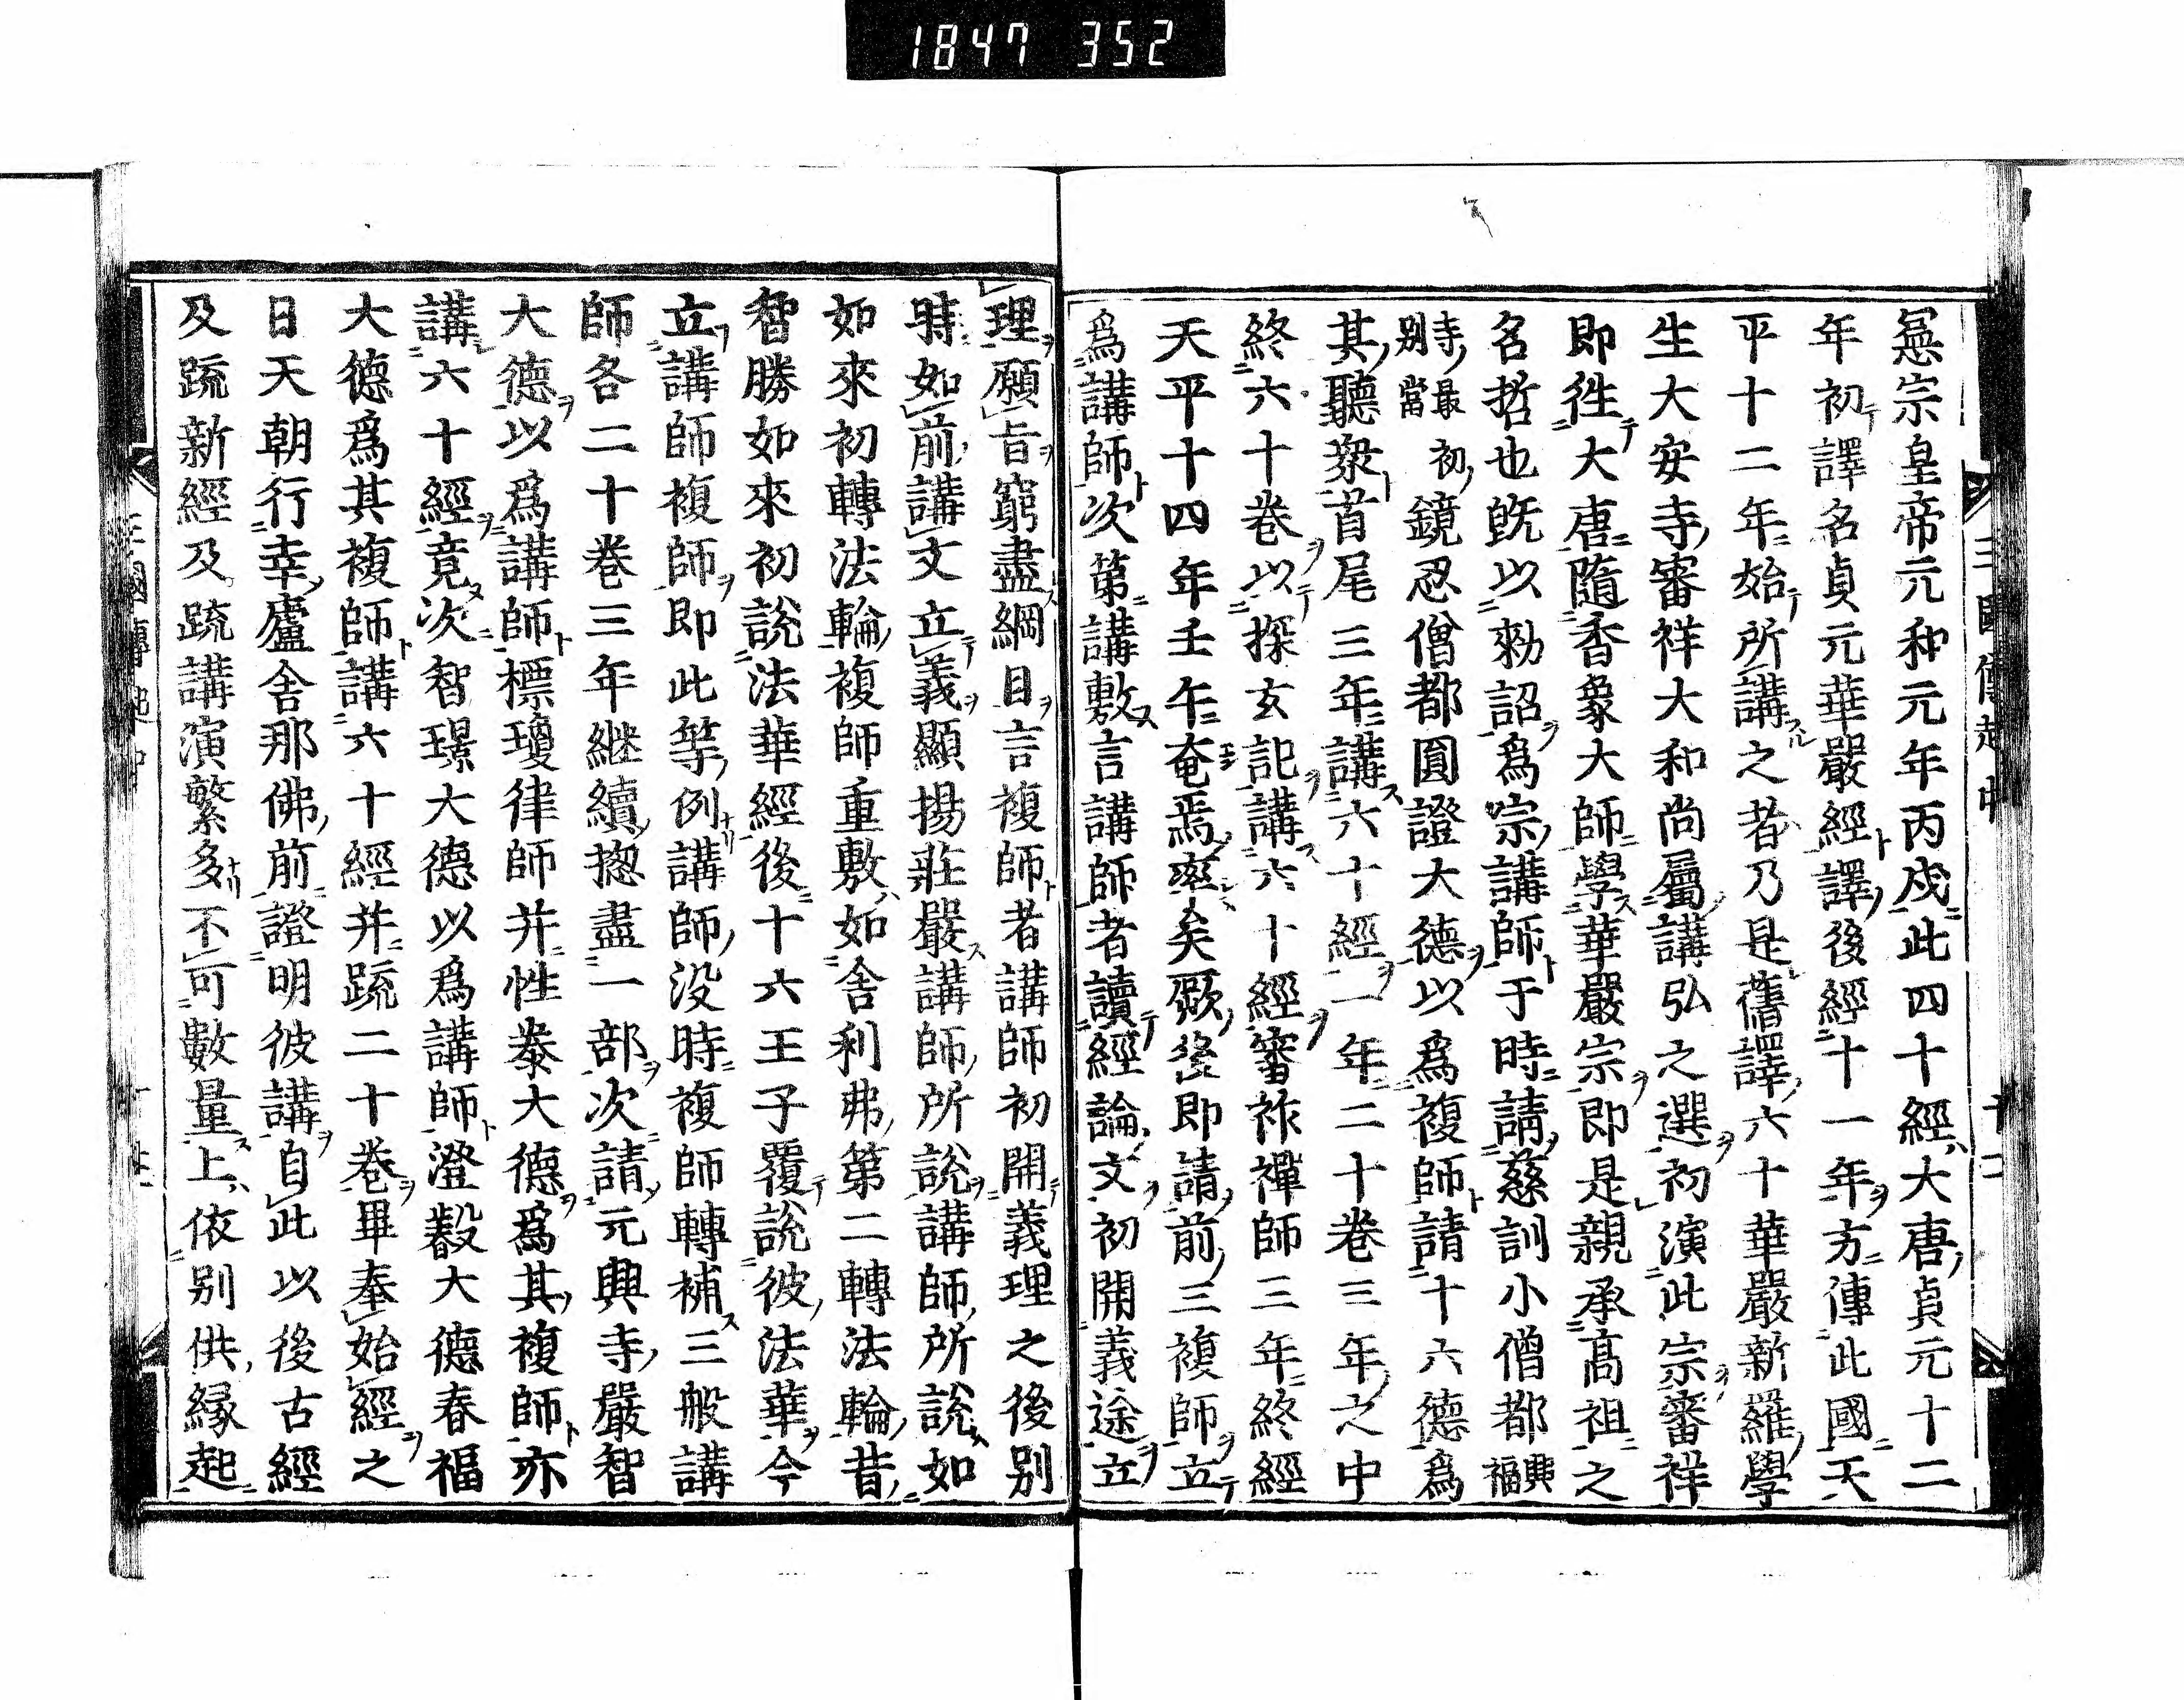 1847 352
憲宗皇帝元和元年丙戌此四十經大唐貞元十二
年初譯名貞元華嚴經譯後經十一年方傳此國天
平十二年始所講之者乃是舊譯六十華嚴新羅學
生大安寺審祥大和尚屬講弘之選初演此宗審祥
即往大唐隨香象大師學華嚴宗即是親承高祖之
名哲也既以勅詔爲宗講師于時請慈訓小僧都興福
寺最初別當鏡忍僧都圓證大德以爲複師請十六德爲
其聽衆首尾三年講六十經一年二十卷三年之中
終六十卷以探玄記講六十經審祚禪師三年終經
天平十四年壬午奄焉卒矣厥後即請前三複師立
爲講師次第講敷言講師者讀經論文初開義途立
理願旨窮盡綱目言複師者講師初開義理之後別
時如前講文立義顯揚莊嚴講師所說講師所說如
如來初轉法輪複師重敷如舍利弗第二轉法輪昔
智勝如來初說法華經後十六王子覆說彼法華今
立講師複師即此等例講師没時複師轉補三般講
師各二十卷三年継續揔盡一部次請元興寺嚴智
大德以爲講師標瓊律師并性泰大德爲其複師亦
講六十經竟次智璟大德以爲講師澄叡大德春福
大德爲其複師講六十經并疏二十卷畢奉始經之
日天朝行幸廬舍那佛前證明彼講自此以後古經
及疏新經及疏講演繁多不可數量上依別供緣起